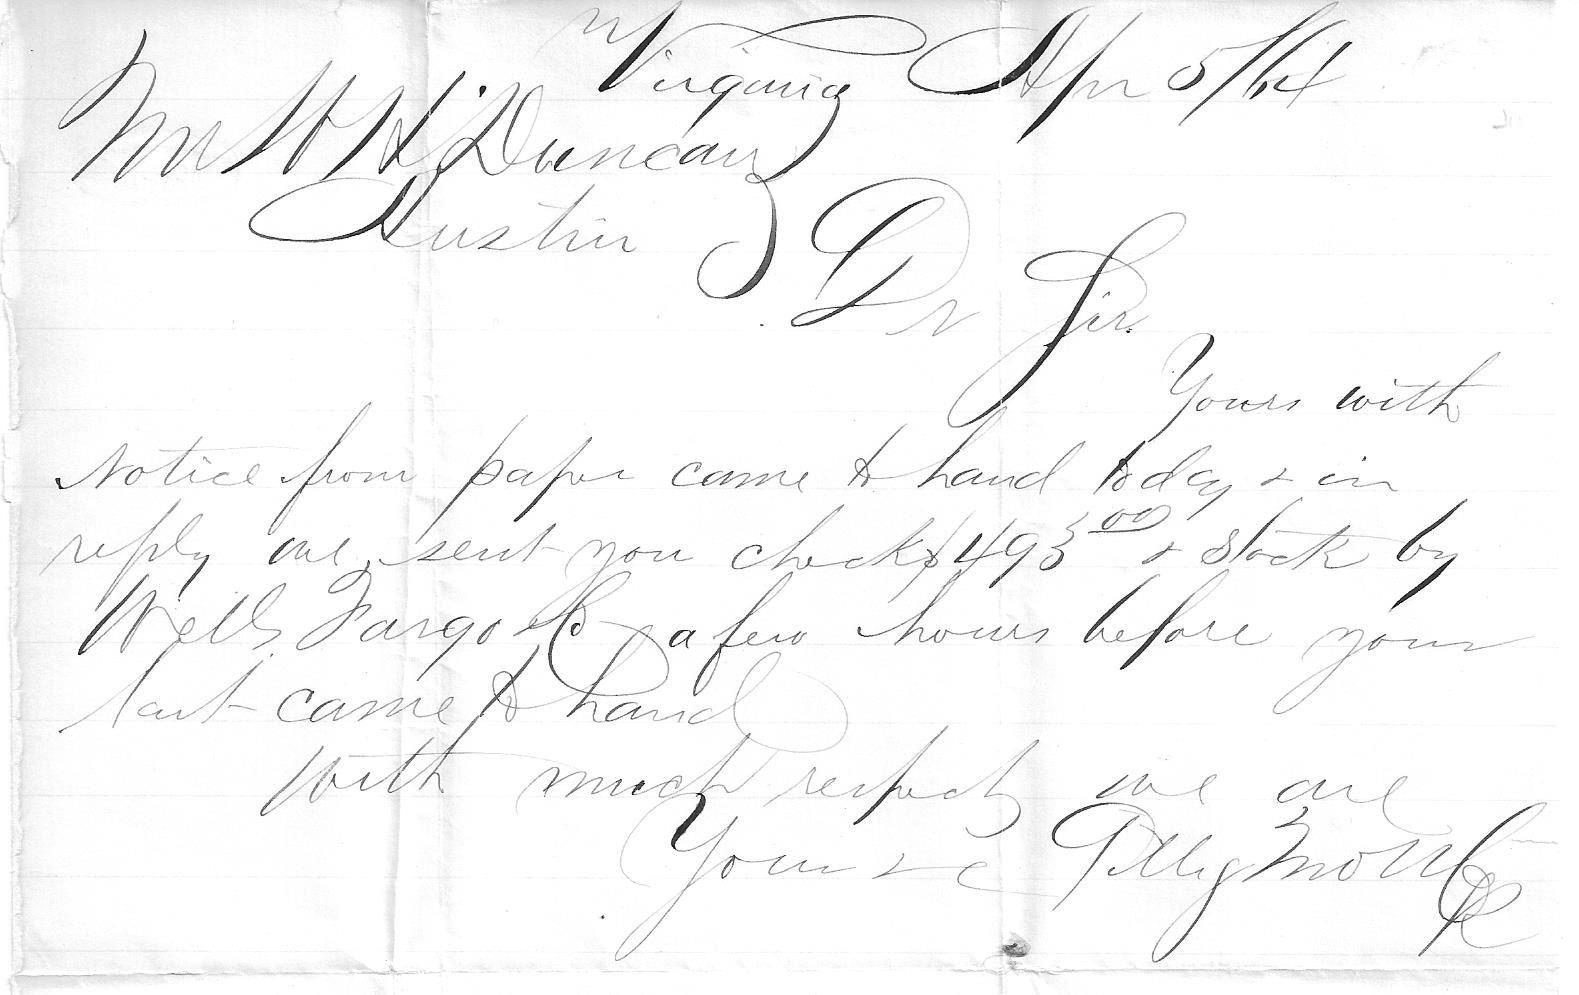 Virginia Apr 5/64
Mr W H Duncan
Austin
Dr Sir.
Yours with
Notice from paper came to hand today & in
reply we sent you check $493 00 & stock by
Wells Fargo & Co a few hours before your
last came to hand
With much respect we are
Yours &c